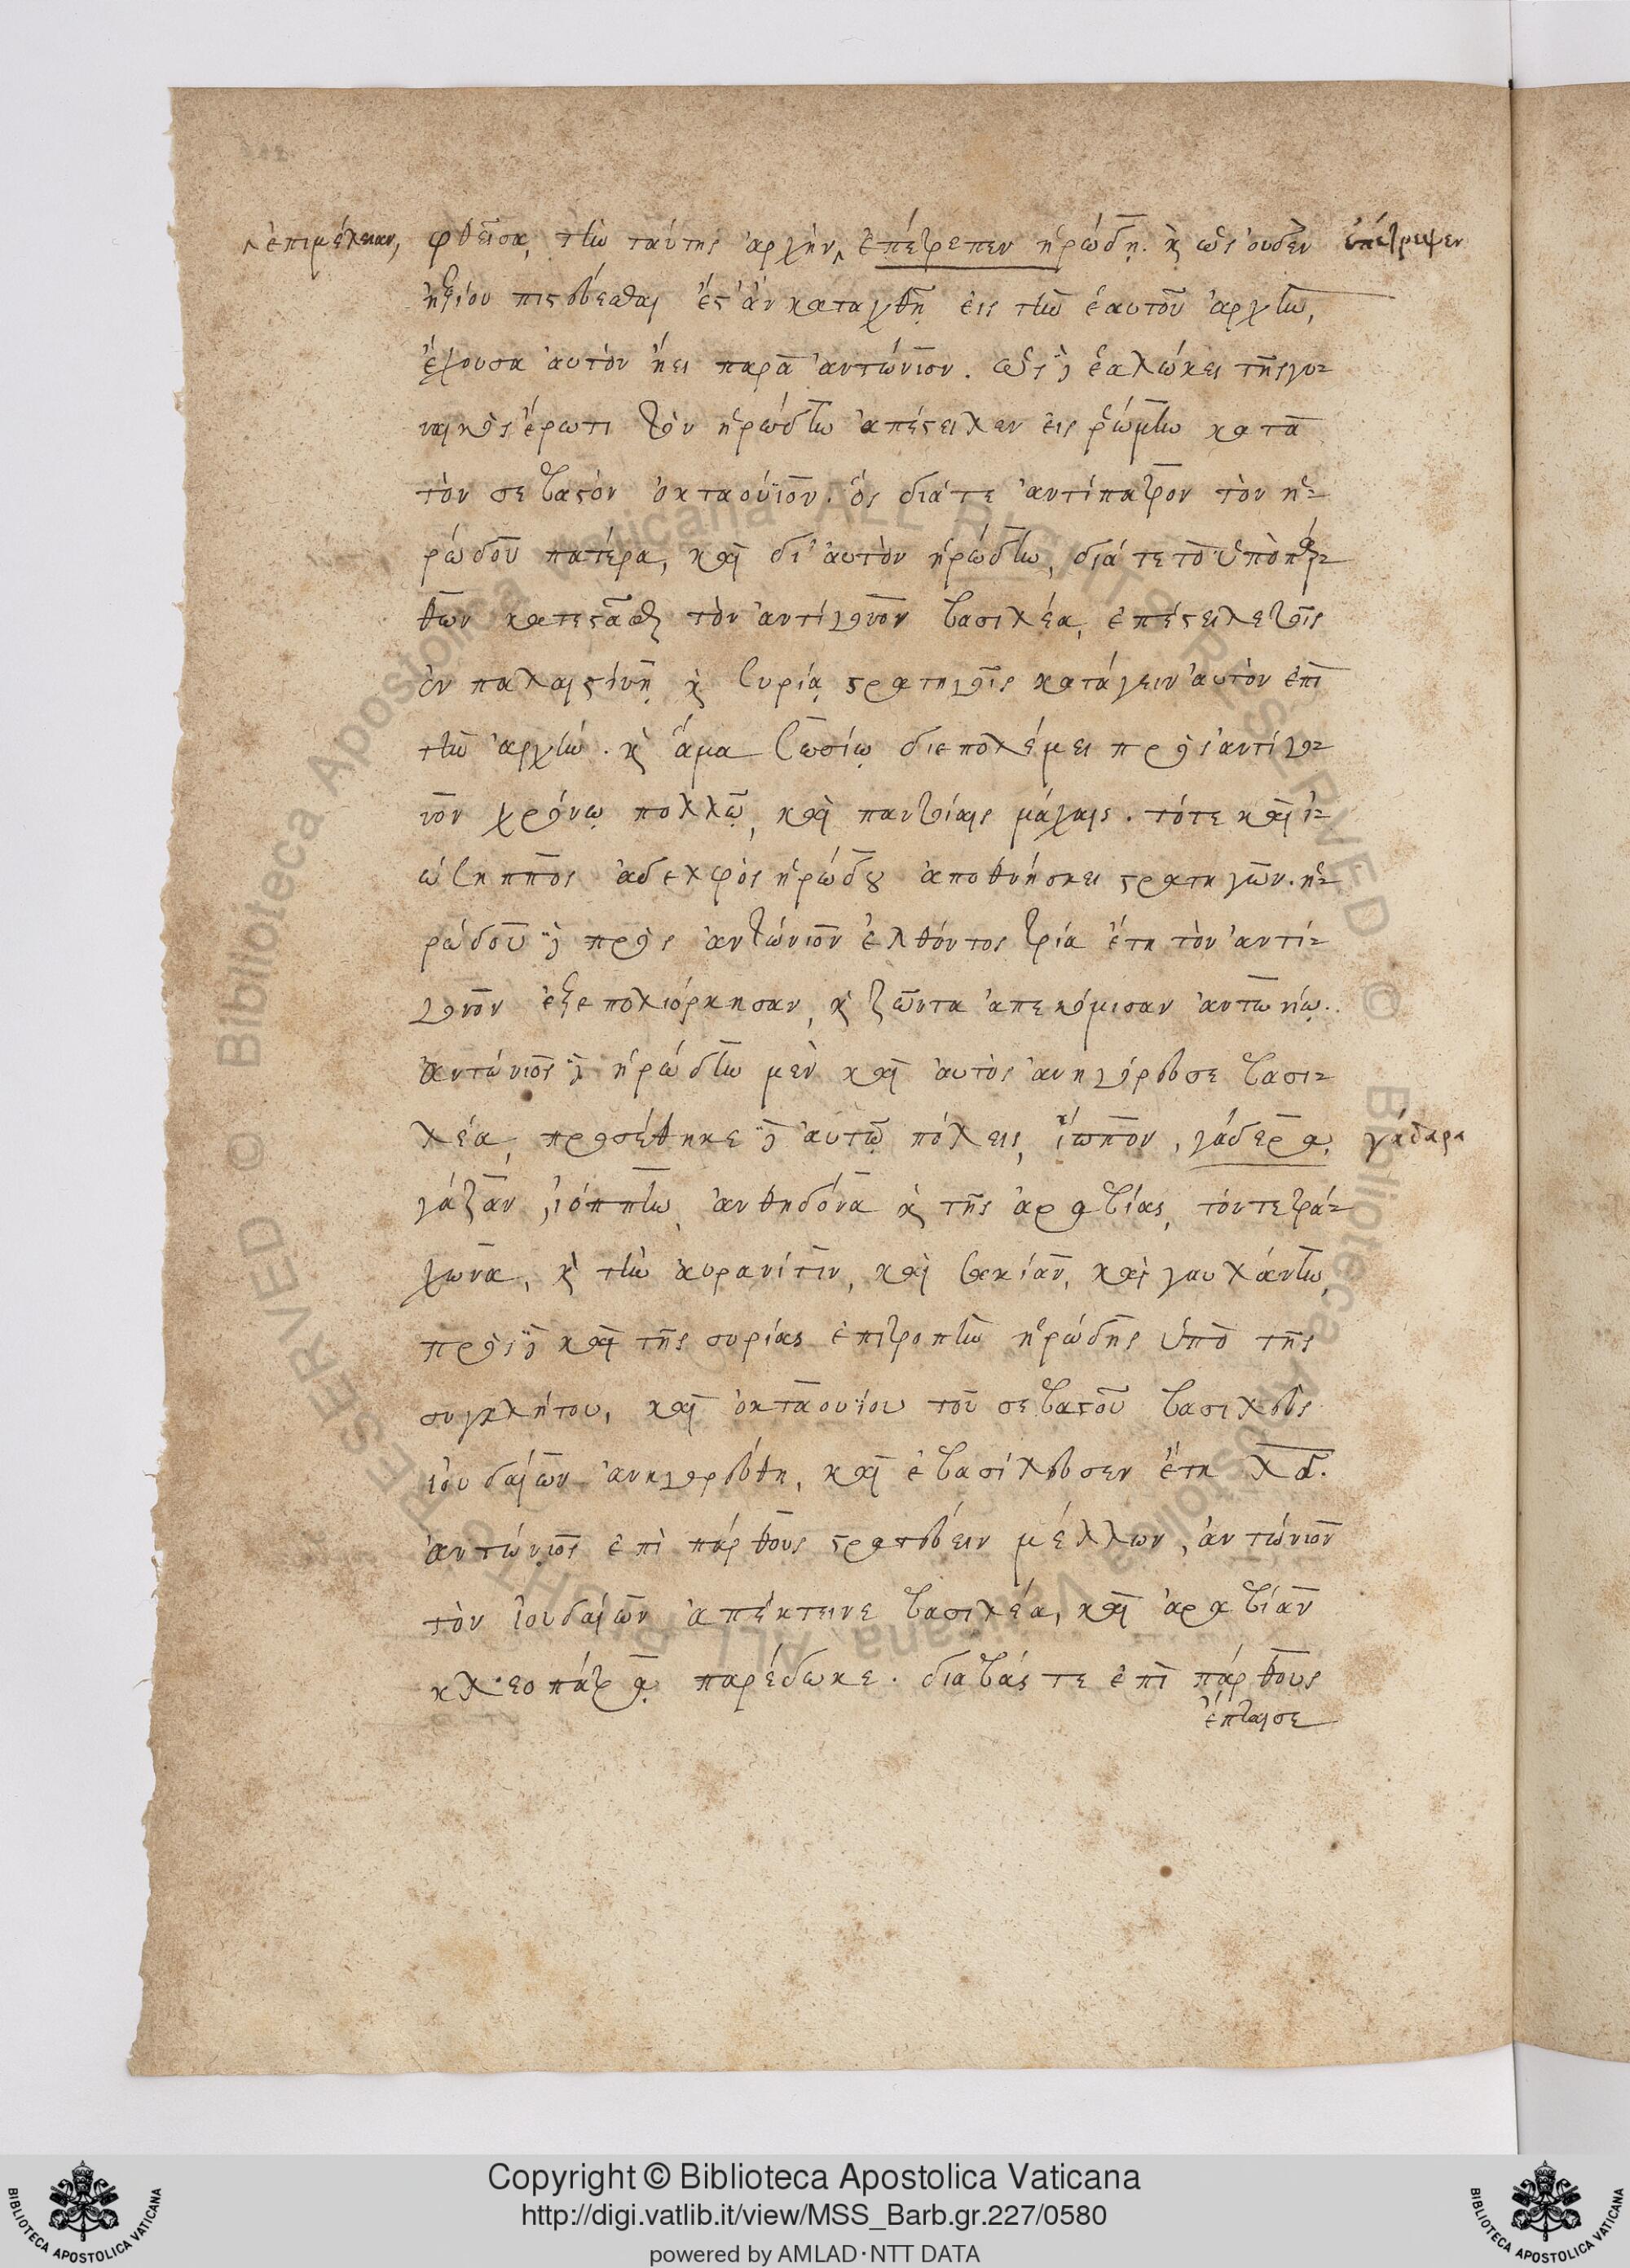 ἐπιμέλειαν, φθεῖσα, τὴν ταύτης ἀρχὴν, ἐπέτρεπεν ἡρώδῃ. κὶ ὡς οὐδὲν ἐπέτρεψεν
ἠξίου πιστεύεσθαι ἔστ' ἀν καταχθῆ εἰς τὴν ἑαυτοῦ ἀρχὴν,
ἔχουσα αὐτὸν ἤει παρὰ ἀντώνιον. ὡς δὲ ἑαλώκει τῆς γυ-
ναικὸς ἔρωτι τὸν ἡρώδην ἀπέστειλεν εἰς ῥώμην κατὰ
τὸν σεβαστὸν ὀκταούϊον. ὃς διά τε ἀντίπατρον τὸν ἡ-
ρώδου πατέρα, καὶ δι' αὐτὸν ἡρώδην, διά τε τὸ ὑπὸ πάρ-
θων κατεστάσθαι τὸν ἀντίγονον βασιλέα, ἐπέστειλε τοῖς
ἐν παλαιστίνῃ κὶ συρίᾳ στρατηγοῖς κατάγειν αὐτὸν ἐπὶ
τὴν ἀρχήν. κὶ ἅμα σωσίῳ διεπολέμει πρὸς ἀντίγο-
νον χρόνῳ πολλῷ, καὶ παντοίαις μάχαις. τότε καὶ ἰ-
ώσηππος ἀδελφὸς ἡρώδου ἀποθνήσκει στρατηγῶν. ἡ-
ρώδου δὲ πρὸς ἀντώνιον ἐλθόντος τρία ἔτη τὸν ἀντί-
γονον ἐξεπολιόρκησαν, κὶ ζῶντα ἀπεκόμισαν ἀντωνίῳ.
ἀντώνιος δὲ ἡρώδην μὲν καὶ αὐτὸς ἀνηγόρευσε βασι-
λέα, προσέθηκε δὲ αὐτῷ πόλεις, ἵωπον, γάδερα, γάδαρα
γάζαν, ἰόππην, ἀνθηδόνα κὶ τῆς ἀραβίας, τόν τε τρά-
χωνα, κὶ τὴν αὐρανίτιν, καὶ σακίαν, καὶ γαυλάνην,
πρὸς δὲ καὶ τῆς συρίας ἐπιτροπὴν ἡρώδης ὑπὸ τῆς
συγκλήτου, καὶ ὀκταουΐου τοῦ σεβαστοῦ βασιλεὺς
ἰουδαίων ἀνηγορεύθη, καὶ ἐβασίλευσεν ἔτη λδ.
ἀντώνιος ἐπὶ πάρθους στρατεύειν μέλλων, ἀντώνιον
τὸν ἰουδαίων ἀπέκτεινε βασιλέα, καὶ ἀραβίαν
κλεοπάτρᾳ παρέδωκε. διαβάς τε ἐπὶ πάρθους
ἔπταισε
Copyright © Biblioteca Apostolica Vaticana
http://digi.vatlib.it/view/MSS_Barb.gr.227/0580
powered by AMLAD·NTT DATA